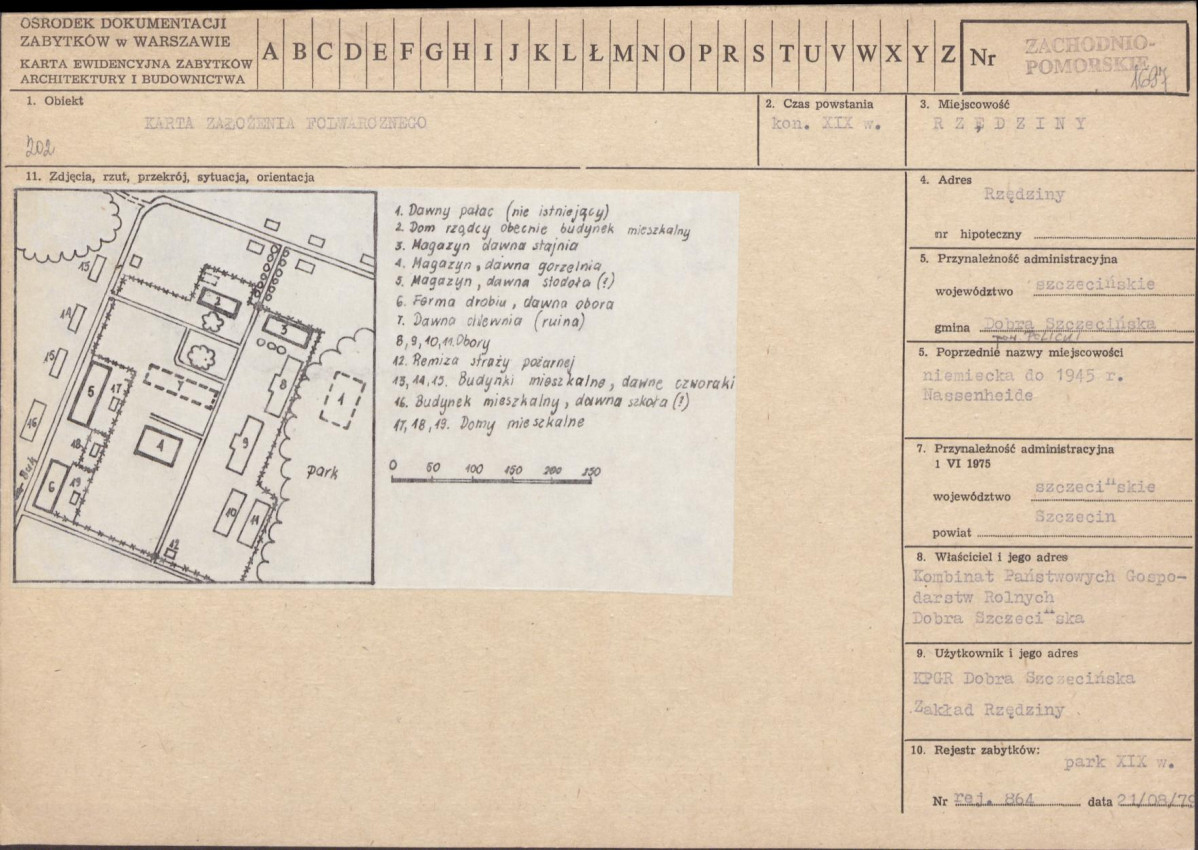 OŚRODEK DOKUMENTACJI
ZABYTKÓW w WARSZAWIE
KARTA EWIDENCYJNA ZABYTKÓW
ARCHITEKTURY I BUDOWNICTWA
A B C D E F G H I J K L Ł M N O P R S T U V W X Y Z
Nr
ZACHODNIO-
POMORSKIE
1687
1. Obiekt
KARTA ZAŁOŻENIA FOLWARCZNEGO
202
2. Czas powstania
kon. XIX w.
3. Miejscowość
RZĘDZINY
11. Zdjęcia, rzut, przekrój, sytuacja, orientacja
1. Dawny pałac (nie istniejący)
2. Dom rządcy obecnie budynek mieszkalny
3. Magazyn dawna stajnia
4. Magazyn, dawna gorzelnia
5. Magazyn, dawna stodoła (!)
6. Ferma drobiu, dawna obora
7. Dawna chlewnia (ruina)
8,9,10,11. Obory
12. Remiza straży pożarnej
13,14,15. Budynki mieszkalne, dawne czworaki
16. Budynek mieszkalny, dawna szkoła (!)
17,18,19. Domy mieszkalne
0 50 100 150 200 250
13
2
14
3
15
17
7
8
1
5
16
4
9
18
park
Buk
6
19
10
11
12
4. Adres
Rzędziny
nr hipoteczny
5. Przynależność administracyjna
województwo szczecińskie
gmina Dobra Szczecińska
POLICKI
5. Poprzednie nazwy miejscowości
niemiecka do 1945 r.
Nassenheide
7. Przynależność administracyjna
1 VI 1975
województwo szczeci"skie
powiat Szczecin
8. Właściciel i jego adres
Kombinat Państwowych Gospo-
darstw Rolnych
Dobra Szczeci"ska
9. Użytkownik i jego adres
KPGR Dobra Szczecińska
Zakład Rzędziny
10. Rejestr zabytków:
park XIX w.
Nr rej. 864 data 21/08/79